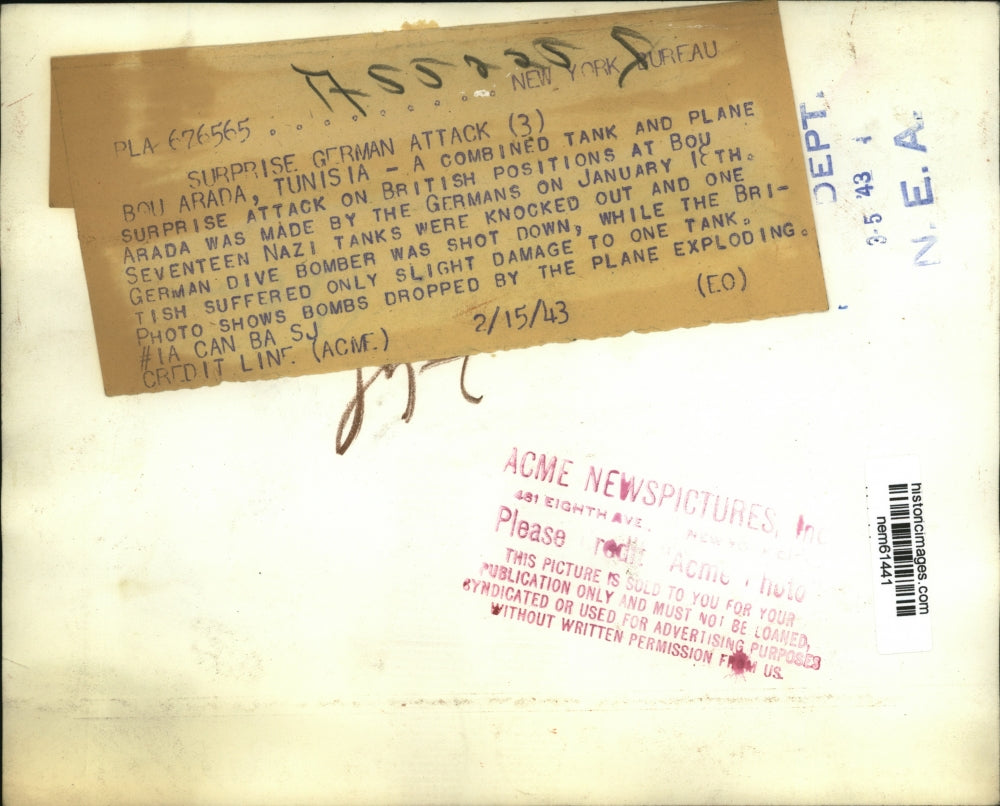 NEW YORK BUREAU
PLA 676565
SURPRISE GERMAN ATTACK (3)
BOU ARADA, TUNISIA – A COMBINED TANK AND PLANE
SURPRISE ATTACK ON BRITISH POSITIONS AT BOU
ARADA WAS MADE BY THE GERMANS ON JANUARY 18TH.
SEVENTEEN NAZI TANKS WERE KNOCKED OUT AND ONE
GERMAN DIVE BOMBER WAS SHOT DOWN, WHILE THE BRI-
TISH SUFFERED ONLY SLIGHT DAMAGE TO ONE TANK.
PHOTO SHOWS BOMBS DROPPED BY THE PLANE EXPLODING.
#1A CAN BA SJ
CREDIT LINE (ACME) 2/15/43 (EO)
DEPT.
3-5 '43
N. E. A.
ACME NEWSPICTURES, Inc
461 EIGHTH AVE. NEW YORK CITY
Please Credit "Acme Photo
THIS PICTURE IS SOLD TO YOU FOR YOUR
PUBLICATION ONLY AND MUST NOT BE LOANED,
SYNDICATED OR USED FOR ADVERTISING PURPOSES
WITHOUT WRITTEN PERMISSION FROM US.
historicimages.com
nem61441